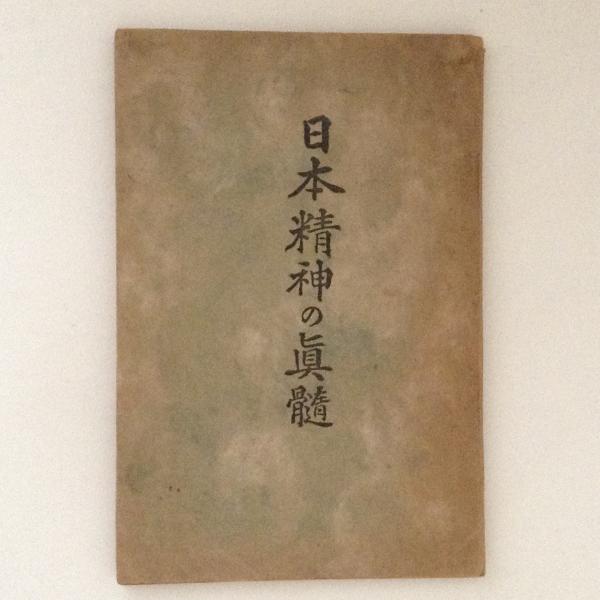 日本精神の眞髓